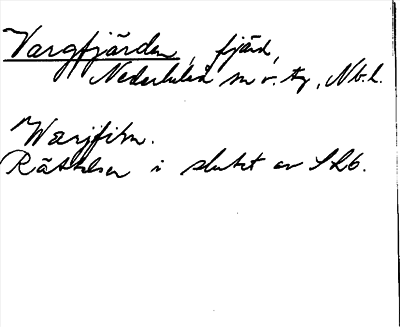 Vargfjärden, fjärd,
Nederluleå sn v. ty, Nb. l.
Wargfikn.
Rättelser i slutet av SL6.